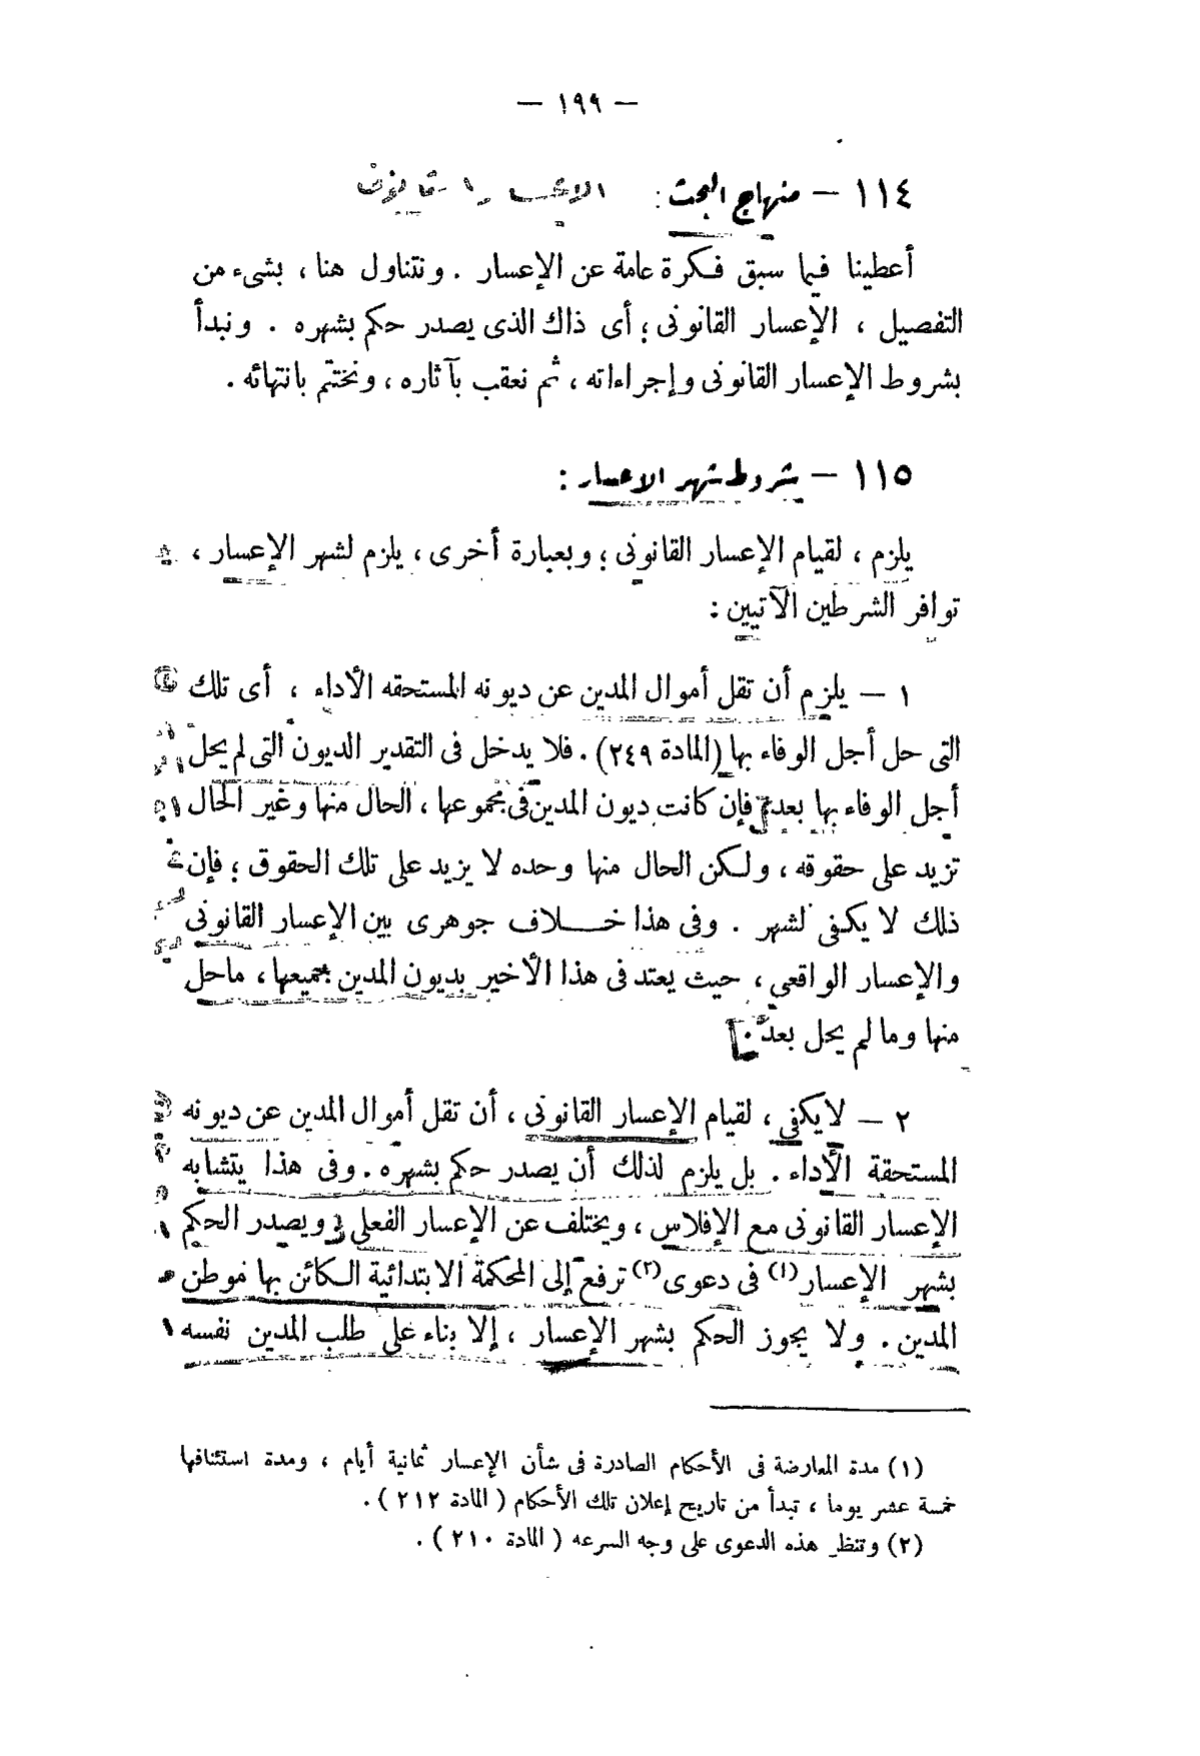 — ١٩٩ —
١١٤ — منهاج البحث :
أعطينا فيما سبق فكرة عامة عن الإعسار . ونتناول هنا ، بشىء من
التفصيل ، الإعسار القانونى ؛ أى ذاك الذى يصدر حكم بشهره . ونبدأ
بشروط الإعسار القانونى وإجراءاته ، ثم نعقب بآثاره ، ونختتم بانتهائه .
١١٥ — شروط شهر الاعسار :
يلزم ، لقيام الإعسار القانونى ؛ وبعبارة أخرى ، يلزم لشهر الإعسار ،
توافر الشرطين الآتيين :
١ — يلزم أن تقل أموال المدين عن ديونه المستحقه الأداء ، أى تلك
التى حل أجل الوفاء بها (المادة ٢٤٩) . فلا يدخل فى التقدير الديون التى لم يحل
أجل الوفاء بها بعد . فإن كانت ديون المدين فى مجموعها ، الحال منها وغير الحال
تزيد على حقوقه ، ولكن الحال منها وحده لا يزيد على تلك الحقوق ؛ فإن
ذلك لا يكفى لشهر . وفى هذا خلاف جوهرى بين الإعسار القانونى
والإعسار الواقعى ، حيث يعتد فى هذا الأخير بديون المدين بجميعها ، ماحل
منها وما لم يحل بعد .
٢ — لايكفى ، لقيام الإعسار القانونى ، أن تقل أموال المدين عن ديونه
المستحقة الأداء . بل يلزم لذلك أن يصدر حكم بشهره . وفى هذا يتشابه
الإعسار القانونى مع الإفلاس ، ويختلف عن الإعسار الفعلى ويصدر الحكم
بشهر الإعسار (١) فى دعوى (٢) ترفع إلى المحكمة الابتدائية الكائن بها موطن
المدين . ولا يجوز الحكم بشهر الإعسار ، إلا بناء على طلب المدين نفسه
(١) مدة المعارضة فى الأحكام الصادرة فى شأن الإعسار ثمانية أيام ، ومدة استئنافها
خمسة عشر يوما ، تبدأ من تاريخ إعلان تلك الأحكام ( المادة ٢١٢ ) .
(٢) وتنظر هذه الدعوى على وجه السرعه ( المادة ٢١٠ ) .